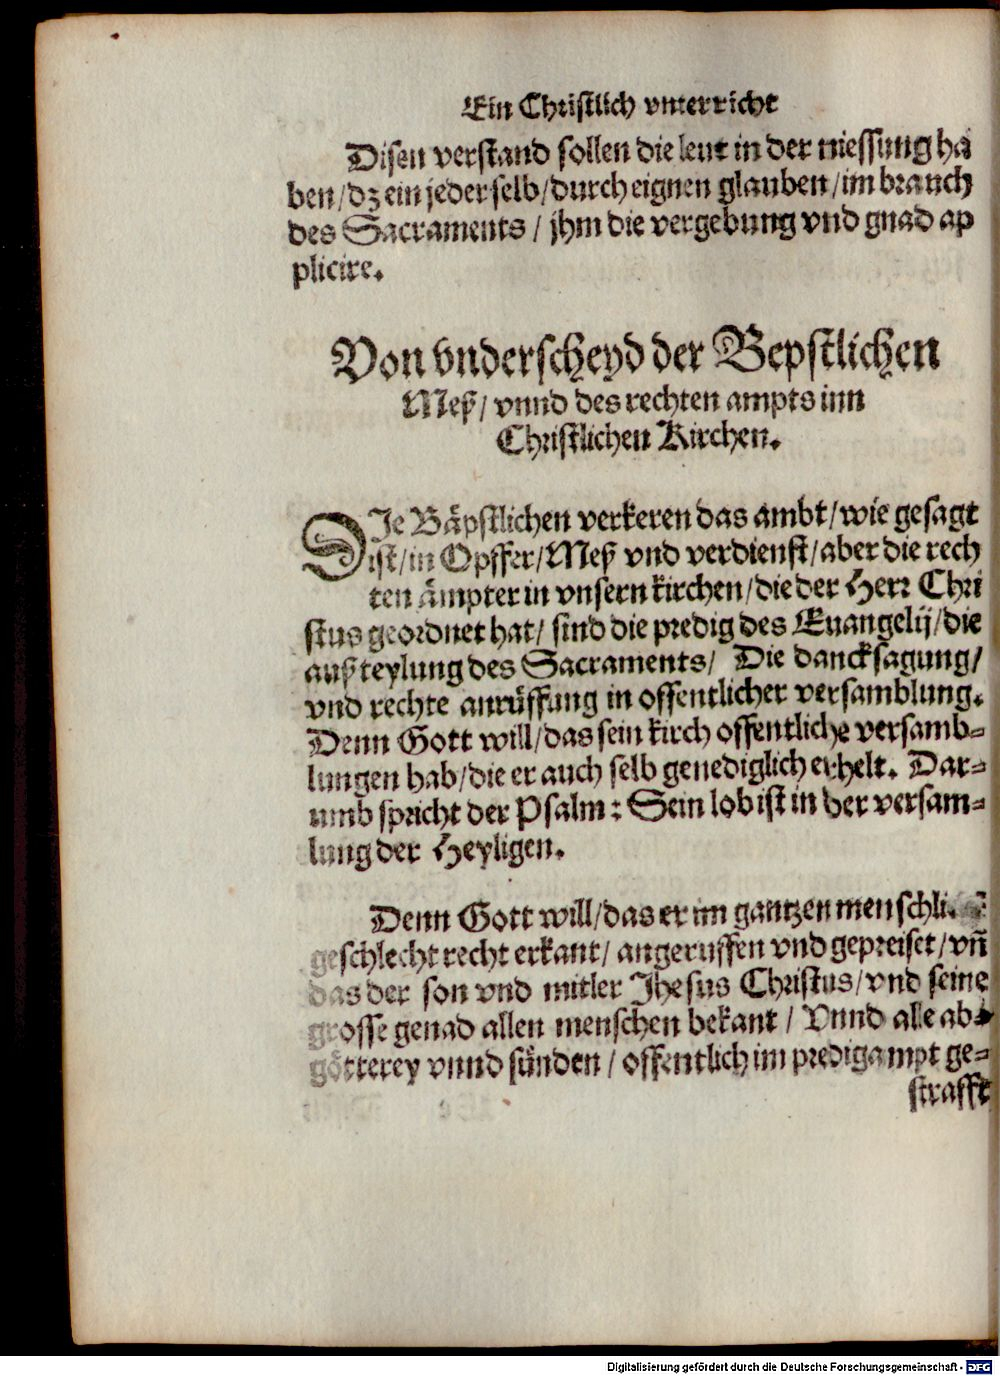 Ein Christlich vnterricht
Disen verstand sollen die leut in der niessung ha
ben/dz ein jeder selb/durch eignen glauben/im brauch
des Sacraments / jhm die vergebung vnd gnad ap
plicire.
Von vnderscheyd der Bepstlichen
Meß/ vnnd des rechten ampts inn
Christlichen Kirchen.
DIe Bäpstlichen verkeren das ambt/wie gesagt
ist/in Opffer/Meß vnd verdienst/aber die rech
ten ämpter in vnsern kirchen/die der Herr Chri
stus geordnet hat/ sind die predig des Euangelij/die
außteylung des Sacraments/ Die dancksagung/
vnd rechte anrüffung in offentlicher versamblung.
Denn Gott will/das sein kirch offentliche versamb-
lungen hab/die er auch selb genediglich erhelt. Dar-
umb spricht der Psalm: Sein lob ist in der versam-
lung der Heyligen.
Denn Gott will/das er im gantzen menschli.
geschlecht recht erkant/ angeruffen vnd gepreiset/vñ
das der son vnd mitler Jhesus Christus/vnd seine
grosse genad allen menschen bekant / Vnnd alle ab-
götterey vnnd sünden / offentlich im predigampt ge-
strafft
Digitalisierung gefördert durch die Deutsche Forschungsgemeinschaft - DFG